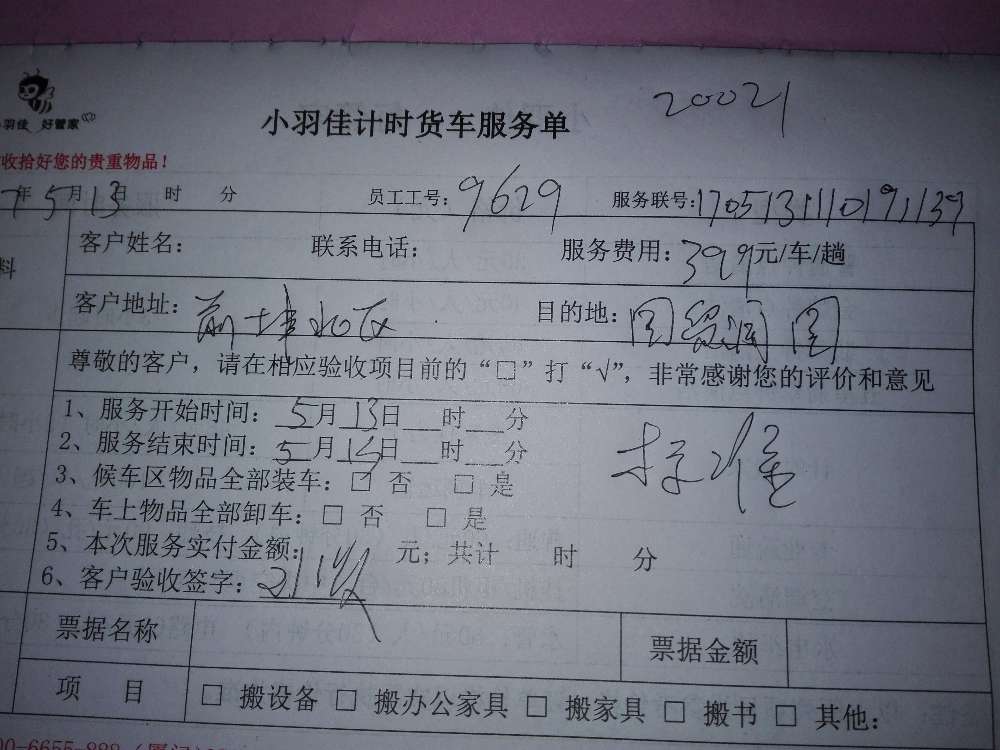 20021
小羽佳 好管家
小羽佳计时货车服务单
收拾好您的贵重物品！
7年5月13日 时 分 员工工号：9629 服务联号：
客户姓名： 联系电话： 服务费用：399元/车/趟
料
客户地址： 目的地：
尊敬的客户，请在相应验收项目前的“□”打“√”，非常感谢您的评价和意见
1、服务开始时间：5月13日__时__分
2、服务结束时间：5月 日__时__分
标准
3、候车区物品全部装车：□ 否 □ 是
4、车上物品全部卸车：□ 否 □ 是
5、本次服务实付金额： 元；共计 时 分
6、客户验收签字：
票据名称 票据金额
项 目 □ 搬设备 □ 搬办公家具 □ 搬家具 □ 搬书 □ 其他：
00-6655-888